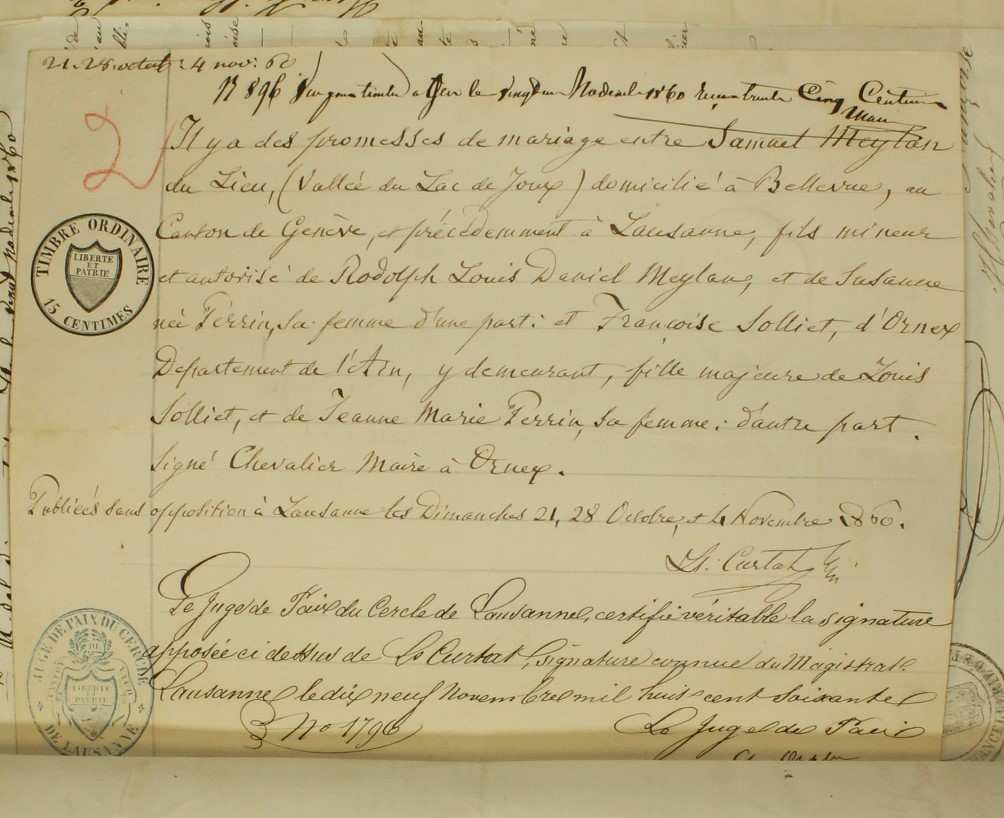 21. 28. octob: 4 nov: 60
N 896 Vu pour timbre à Gex le vingt un 1860 reçu trente Cinq Centimes
2
Il y a des promesses de mariage entre Samuel Meylan
du Lieu, (Vallée du Lac de Joux) domicilié à Bellevue, au
Canton de Genève, et précédemment à Lausanne, fils mineur
et autorisé de Rodolph Louis Daniel Meylan, et de Susanne
née Perrin, sa femme d'une part: et Françoise Solliet, d'Ornex
Departement de l'Ain, y demeurant, fille majeure de Louis
Solliet, et de Jeanne Marie Perrin, sa femme: d'autre part.
Signé Chevalier Maire à Ornex.
Publiées sans opposition à Lausanne les Dimanches 21, 28 Octobre, et 4 Novembre 1860.
Ls: Curtat
Le Juge de Paix du Cercle de Lausanne, certifie véritable la signature
apposée ci dessus de Ls Curtat, signature connue du Magistrat.
Lausanne le dix neuf Novembre mil huit cent soixante
No 1796
Le Juge de Paix
TIMBRE ORDINAIRE
LIBERTE
ET
PATRIE
15 CENTIMES
JUGE DE PAIX DU CERCLE
CANTON DE VAUD
LIBERTE
ET
PATRIE
DE LAUSANNE